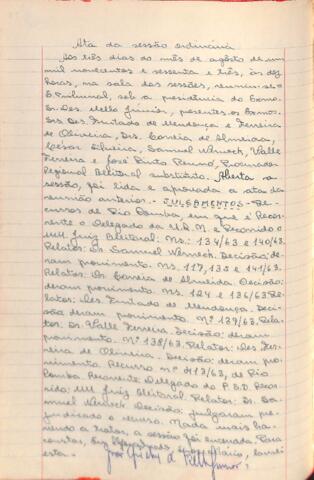 Ata da sessão ordinária
Aos três dias do mês de agôsto de um
mil novecentos e sessenta e três, às dez
horas, na sala das sessões, reuniu-se o
Tribunal, sob a presidência do Exmo.
Sr. Des. Mello Júnior, presentes os Exmos.
Srs. Des. Furtado de Mendonça e Ferreira
de Oliveira, Drs. Corrêia de Almeida,
César Silveira, Samuel Werneck, Valle
Ferreira e José Pinto Renno, Procurador
Regional Eleitoral substituto. Aberta a
sessão, foi lida e aprovada a ata da
reunião anterior. - JULGAMENTOS - Re-
cursos de Rio Pomba, em que é Recor-
rente o Delegado da U.D.N. e Recorrido o
MM. Juiz Eleitoral: Ns.: 134/63 e 140/63.
Relator: Dr. Samuel Werneck. Decisão: de-
ram provimento. Ns. 117, 134 e 141/63.
Relator: Dr. Correia de Almeida. Decisão:
deram provimento. Ns. 124 e 136/63. Re-
lator: Des. Furtado de Mendonça. Deci-
são: deram provimento. Nº 139/63. Rela-
tor: Dr. Valle Ferreira. Decisão: deram
provimento. Nº 138/63. Relator: Des. Fer-
reira de Oliveira. Decisão: deram pro-
vimento. Recurso nº 113/63, de Rio
Pomba. Recorrente Delegado do P.S.D. Recor-
rido: MM. Juiz Eleitoral. Relator: Dr. Sa-
muel Werneck. Decisão: julgaram pre-
judicado o recurso. Nada mais ha-
vendo a tratar, a sessão foi encerrada. Para
constar, Eu, Secretário, lavrei
esta.